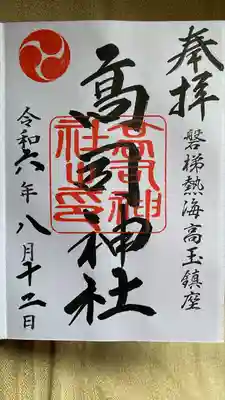 奉拝
磐梯熱海 高玉鎮座
高司神社
令和六年 八月十二日